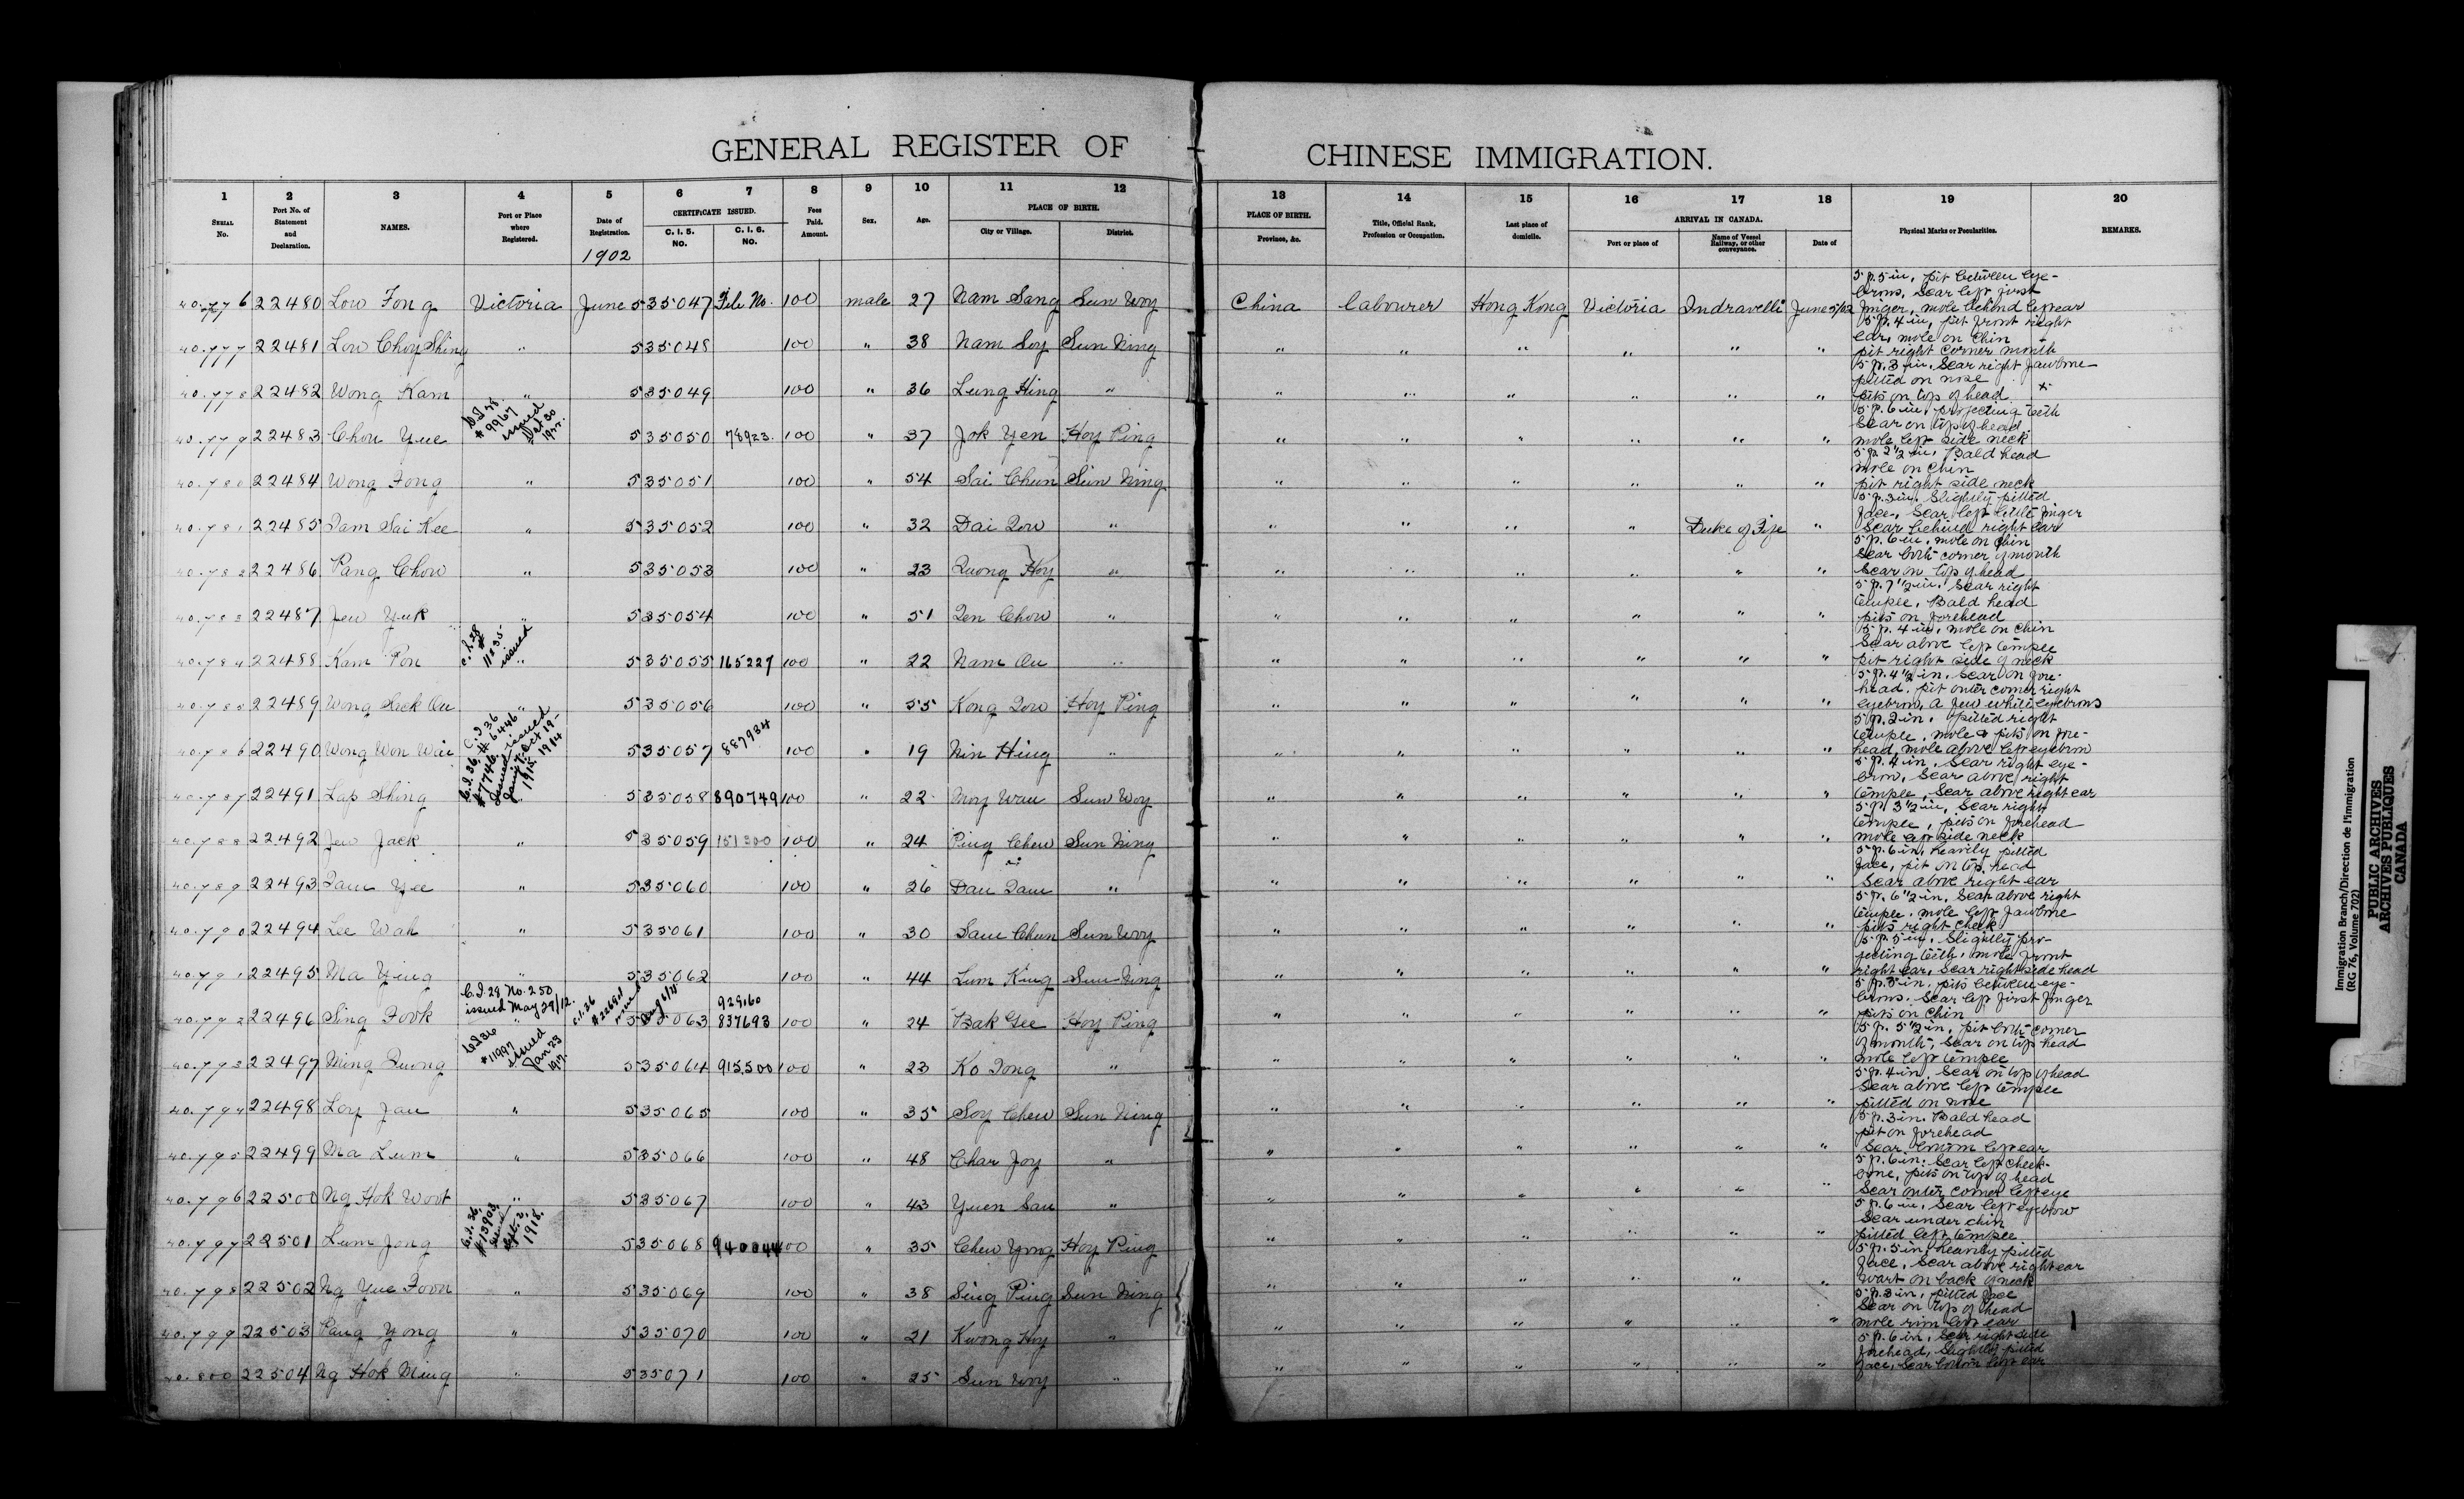 GENERAL REGISTER OF CHINESE IMMIGRATION.
1 2 3 4 5 6 7 8 9 10 11 12 13 14 15 16 17 18 19 20
SERIAL No. Port No. of Statement and Declaration. NAMES. Port or Place where Registered. Date of Registration. CERTIFICATE ISSUED. C. I. 5. NO. C. I. 6. NO. Fees Paid. Amount. Sex. Age. PLACE OF BIRTH. City or Village. District. PLACE OF BIRTH. Province, &c. Title, Official Rank, Profession or Occupation. Last place of domicile. ARRIVAL IN CANADA. Port or place of Name of Vessel Railway, or other conveyance. Date of Physical Marks or Peculiarities. REMARKS.
1902
40.776 22480 Low Fong Victoria June 5 35047 File No. 100 male 27 Nam Sang Sun Woy China Labourer Hong Kong Victoria Indravelli June 5/02 5 f. 5 in, pit between eye-
brows, Scar left first
finger, mole behind left ear
40.777 22481 Low Choy Shing " 5 35048 100 " 38 Nam Soy Sun Ning " " " " " " 5 f. 4 in, pit front right
ear, mole on chin
pit right corner mouth
40.778 22482 Wong Kam " 5 35049 100 " 36 Lung Hing " " " " " " " 5 f. 3 in. Scar right Jawbone
pitted on nose
pits on top of head
40.779 22483 Chou Yue C.I. 28. # 9967 issued Oct 30 5 35050 78923. 100 " 37 Jok Yen Hoy Ping " " " " " " 5 f. 6 in, projecting teeth
Scar on top of head
mole left side neck
40.780 22484 Wong Fong " 5 35051 100 " 54 Sai Chun Sun Ning " " " " " " 5 f. 2 1/2 in, Bald head
mole on chin
pit right side neck
40.781 22485 Tam Sai Kee " 5 35052 100 " 32 Dai Tow " " " " " Duke of Fife " 5 f. 3 in, Slightly pitted
face, Scar left little finger
Scar behind right ear
40.782 22486 Pang Chow " 5 35053 100 " 23 Quong Hoy " " " " " " " 5 f. 6 in, mole on chin
Scar both corner of mouth
Scar on top of head
40.783 22487 Jew Yuk " 5 35054 100 " 51 Ten Chow " " " " " " " 5 f. 7 1/2 in. Scar right
temple, Bald head
pits on forehead
40.784 22488 Kam Pon C.I. 28 # 11835 issued " 5 35055 165227 100 " 22 Nam On " " " " " " " 5 f. 4 in, mole on chin
Scar above left temple
pit right side of neck
40.785 22489 Wong Sack On " 5 35056 100 " 55 Kong Tow Hoy Ping " " " " " " 5 f. 4 1/2 in. Scar on fore-
head. pit outer corner right
eyebrow, a few white eyebrows
40.786 22490 Wong Won Wai C.I. 36 # 6446 issued Oct 19- 1914 5 35057 887934 100 " 19 Nin Hing " " " " " " " 5 f. 2 in. pitted right
temple, mole & pits on fore-
head, mole above left eyebrow
40.787 22491 Lap Shing C.I. 36, # 7746, issued 1915 5 35058 890749 100 " 22 Moy Wan Sun Woy " " " " " " 5 f. 4 in, Scar right eye-
brow, Scar above right
temple, Scar above right ear
40.788 22492 Jew Jack " 5 35059 151300 100 " 24 Ping Chew Sun Ning " " " " " " 5 f. 3 1/2 in, Scar right
temple, pits on forehead
mole left side neck
40.789 22493 Tam Yee " 5 35060 100 " 26 Dan Tam " " " " " " " 5 f. 6 in, heavily pitted
face, pit on top head
Scar above right ear
40.790 22494 Lee Wah " 5 35061 100 " 30 Sam Chun Sun Woy " " " " " " 5 f. 6 1/2 in. Scar above right
temple. mole left Jawbone
pits right cheek
40.791 22495 Ma Ying " 5 35062 100 " 44 Lum King Sun Ning " " " " " " 5 f. 5 in, Slightly pro-
jecting teeth, mole front
right ear, Scar right side head
40.792 22496 Sing Fook C.I. 28 No. 250 issued May 29/12. " C.I. 36 5 35063 92960 837693 100 " 24 Bak Gee Hoy Ping " " " " " " 5 f. 5 in. pits between eye-
brows. Scar left first finger
pits on chin
40.793 22497 Ming Quong C.I. 36 # 11997 issued Jan 23 1917. 5 35064 915500 100 " 23 Ko Tong " " " " " " " 5 f. 5 1/2 in, pit both corner
of mouth, Scar on top head
mole left temple
40.794 22498 Loy Jau " 5 35065 100 " 35 Soy Chew Sun Ning " " " " " " 5 f. 4 in. Scar on top of head
Scar above left temple
pitted on nose
40.795 22499 Ma Lum " 5 35066 100 " 48 Char Joy " " " " " " " 5 f. 3 in. Bald head
pit on forehead
Scar bottom left ear
40.796 22500 Ng Hok Woot " 5 35067 100 " 43 Yuen Sau " " " " " " " 5 f. 6 in. Scar left cheek-
bone, pits on top of head
Scar outer corner left eye
40.797 22501 Lum Jong C.I. 36, # 13903 issued Sept. 3, 1918. 5 35068 940044 100 " 35 Chew Yong Hoy Ping " " " " " " 5 f. 6 in, Scar left eyebrow
Scar under chin
pitted left temple
40.798 22502 Ng Yue Foon " 5 35069 100 " 38 Sing Ping Sun Ning " " " " " " 5 f. 5 in, heavily pitted
face, Scar above right ear
wart on back of neck
40.799 22503 Pang Yong " 5 35070 100 " 21 Kwong Hoy " " " " " " " 5 f. 3 in, pitted face
Scar on top of head
mole rim left ear
40.800 22504 Ng Hok Ming " 5 35071 100 " 25 Sun Woy " " " " " " " 5 f. 6 in, Scar right side
forehead, Slightly pitted
face, Scar bottom left ear
Immigration Branch/Direction de l'immigration
(RG 76, Volume 702)
PUBLIC ARCHIVES
ARCHIVES PUBLIQUES
CANADA